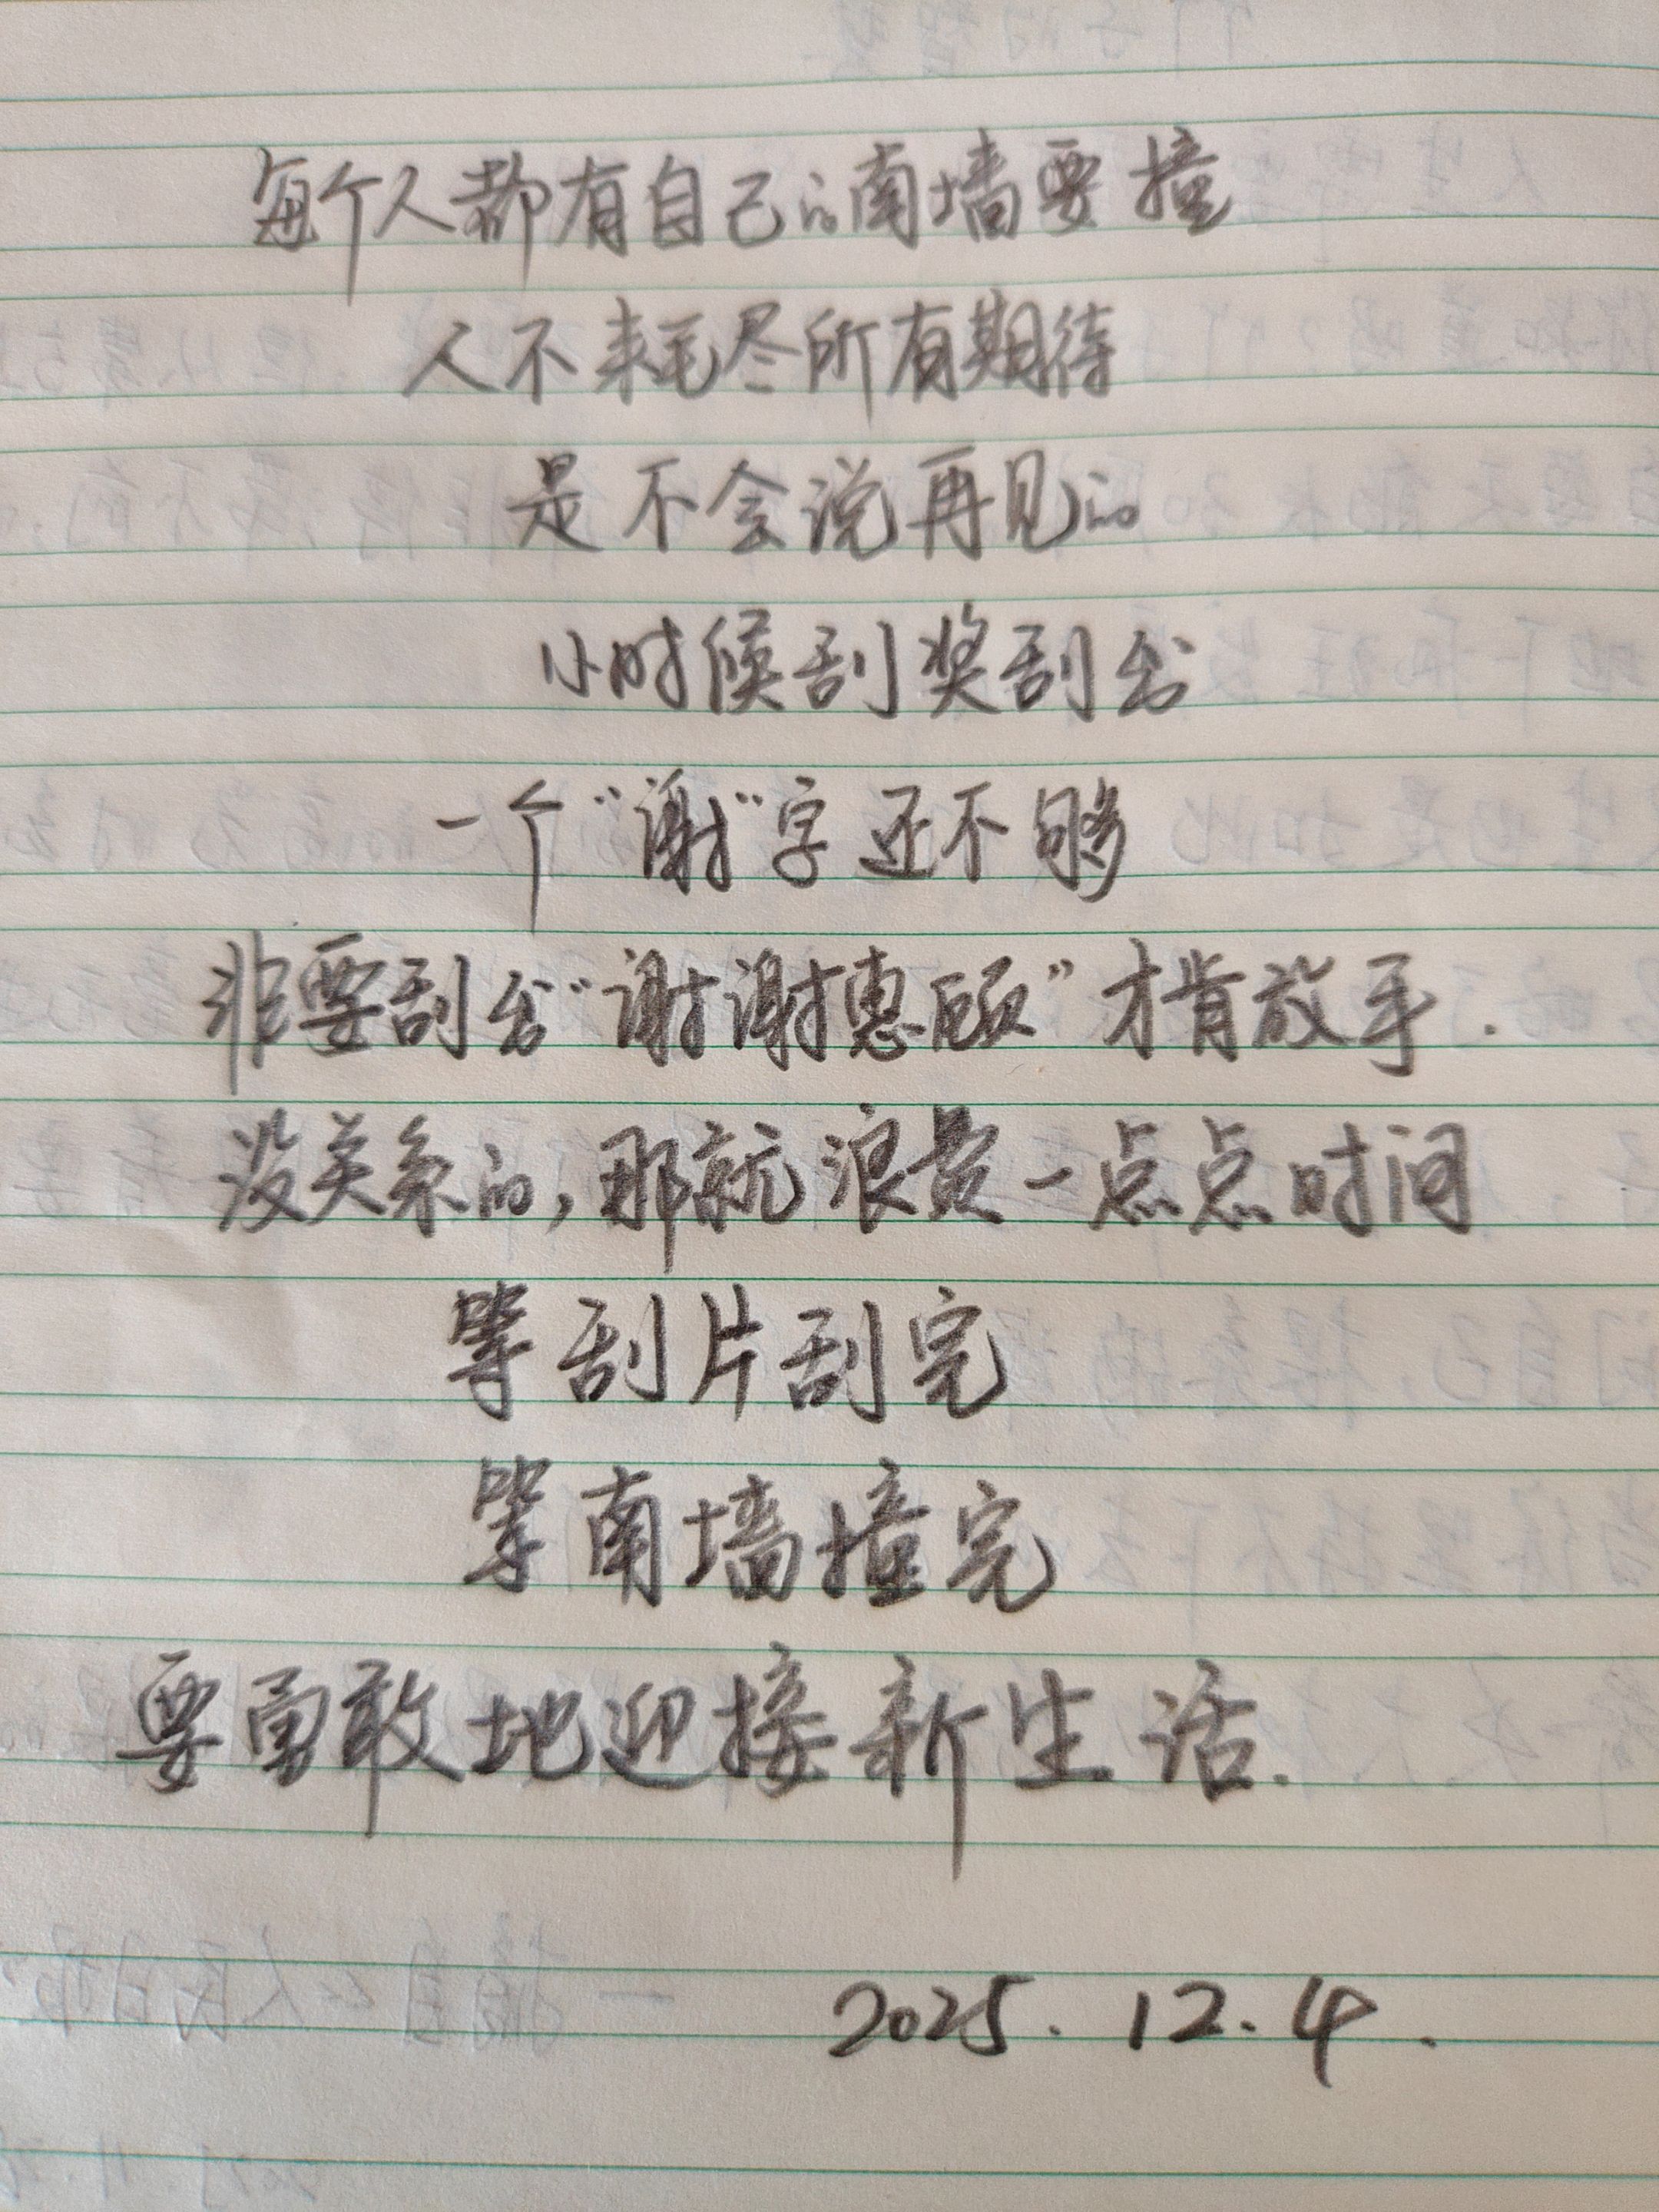 每个人都有自己的南墙要撞
人不耗尽所有期待
是不会说再见的
小时候刮奖刮出
一个“谢”字还不够
非要刮出“谢谢惠顾”才肯放手.
没关系的,那就浪费一点点时间
等刮片刮完
等南墙撞完
要勇敢地迎接新生活.
2025.12.4.